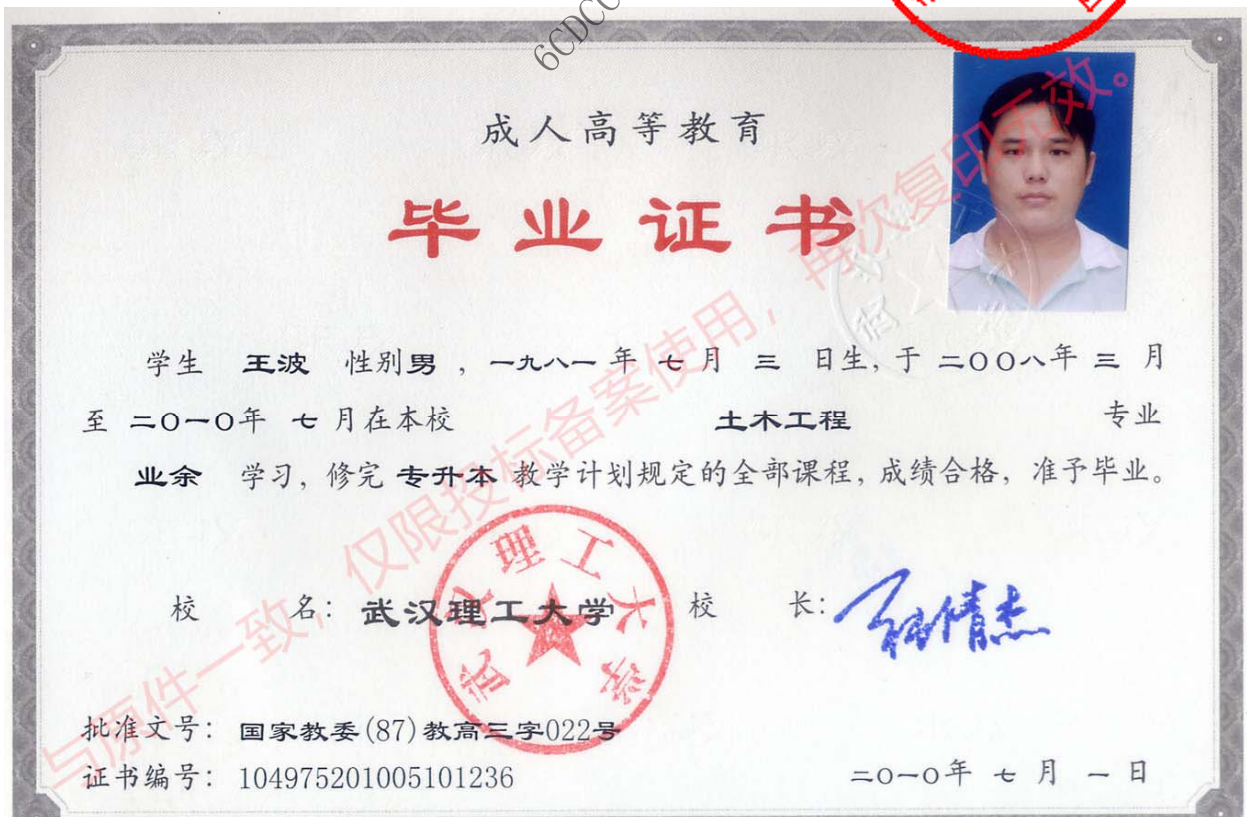 6CDCC
成人高等教育
毕业证书
学生 王波 性别男，一九八一年 七月 三 日生，于 二〇〇八年 三 月
至 二〇一〇年 七 月在本校 土木工程 专业
业余 学习，修完 专升本 教学计划规定的全部课程，成绩合格，准予毕业。
校 名：武汉理工大学 校 长：
武汉理工大学
批准文号：国家教委(87)教高三字022号
证书编号：104975201005101236 二〇一〇年 七 月 一 日
与原件一致，仅限投标备案使用，再次复印无效。